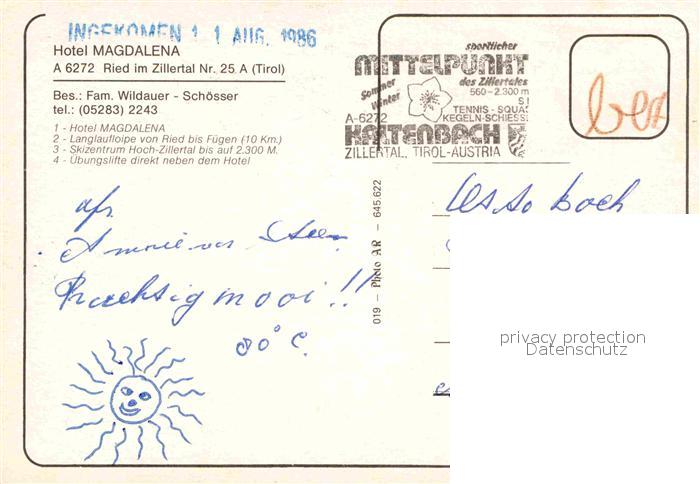 INGEKOMEN 1 1 AUG. 1986
Hotel MAGDALENA
A 6272 Ried im Zillertal Nr. 25 A (Tirol)
Bes.: Fam. Wildauer - Schösser
tel.: (05283) 2243
1 - Hotel MAGDALENA
2 - Langlaufloipe von Ried bis Fügen (10 Km.)
3 - Skizentrum Hoch-Zillertal bis auf 2.300 M.
4 - Übungslifte direkt neben dem Hotel
sportlicher
MITTELPUNKT
des Zillertales
Sommer
Winter
560-2.300 m
TENNIS-SQUA
A-6272
KEGELN-SCHIESS
KALTENBACH
ZILLERTAL, TIROL-AUSTRIA
afz.
Prachtig mooi!!
30°C.
019 - Photo AR - 645.622
privacy protection
Datenschutz